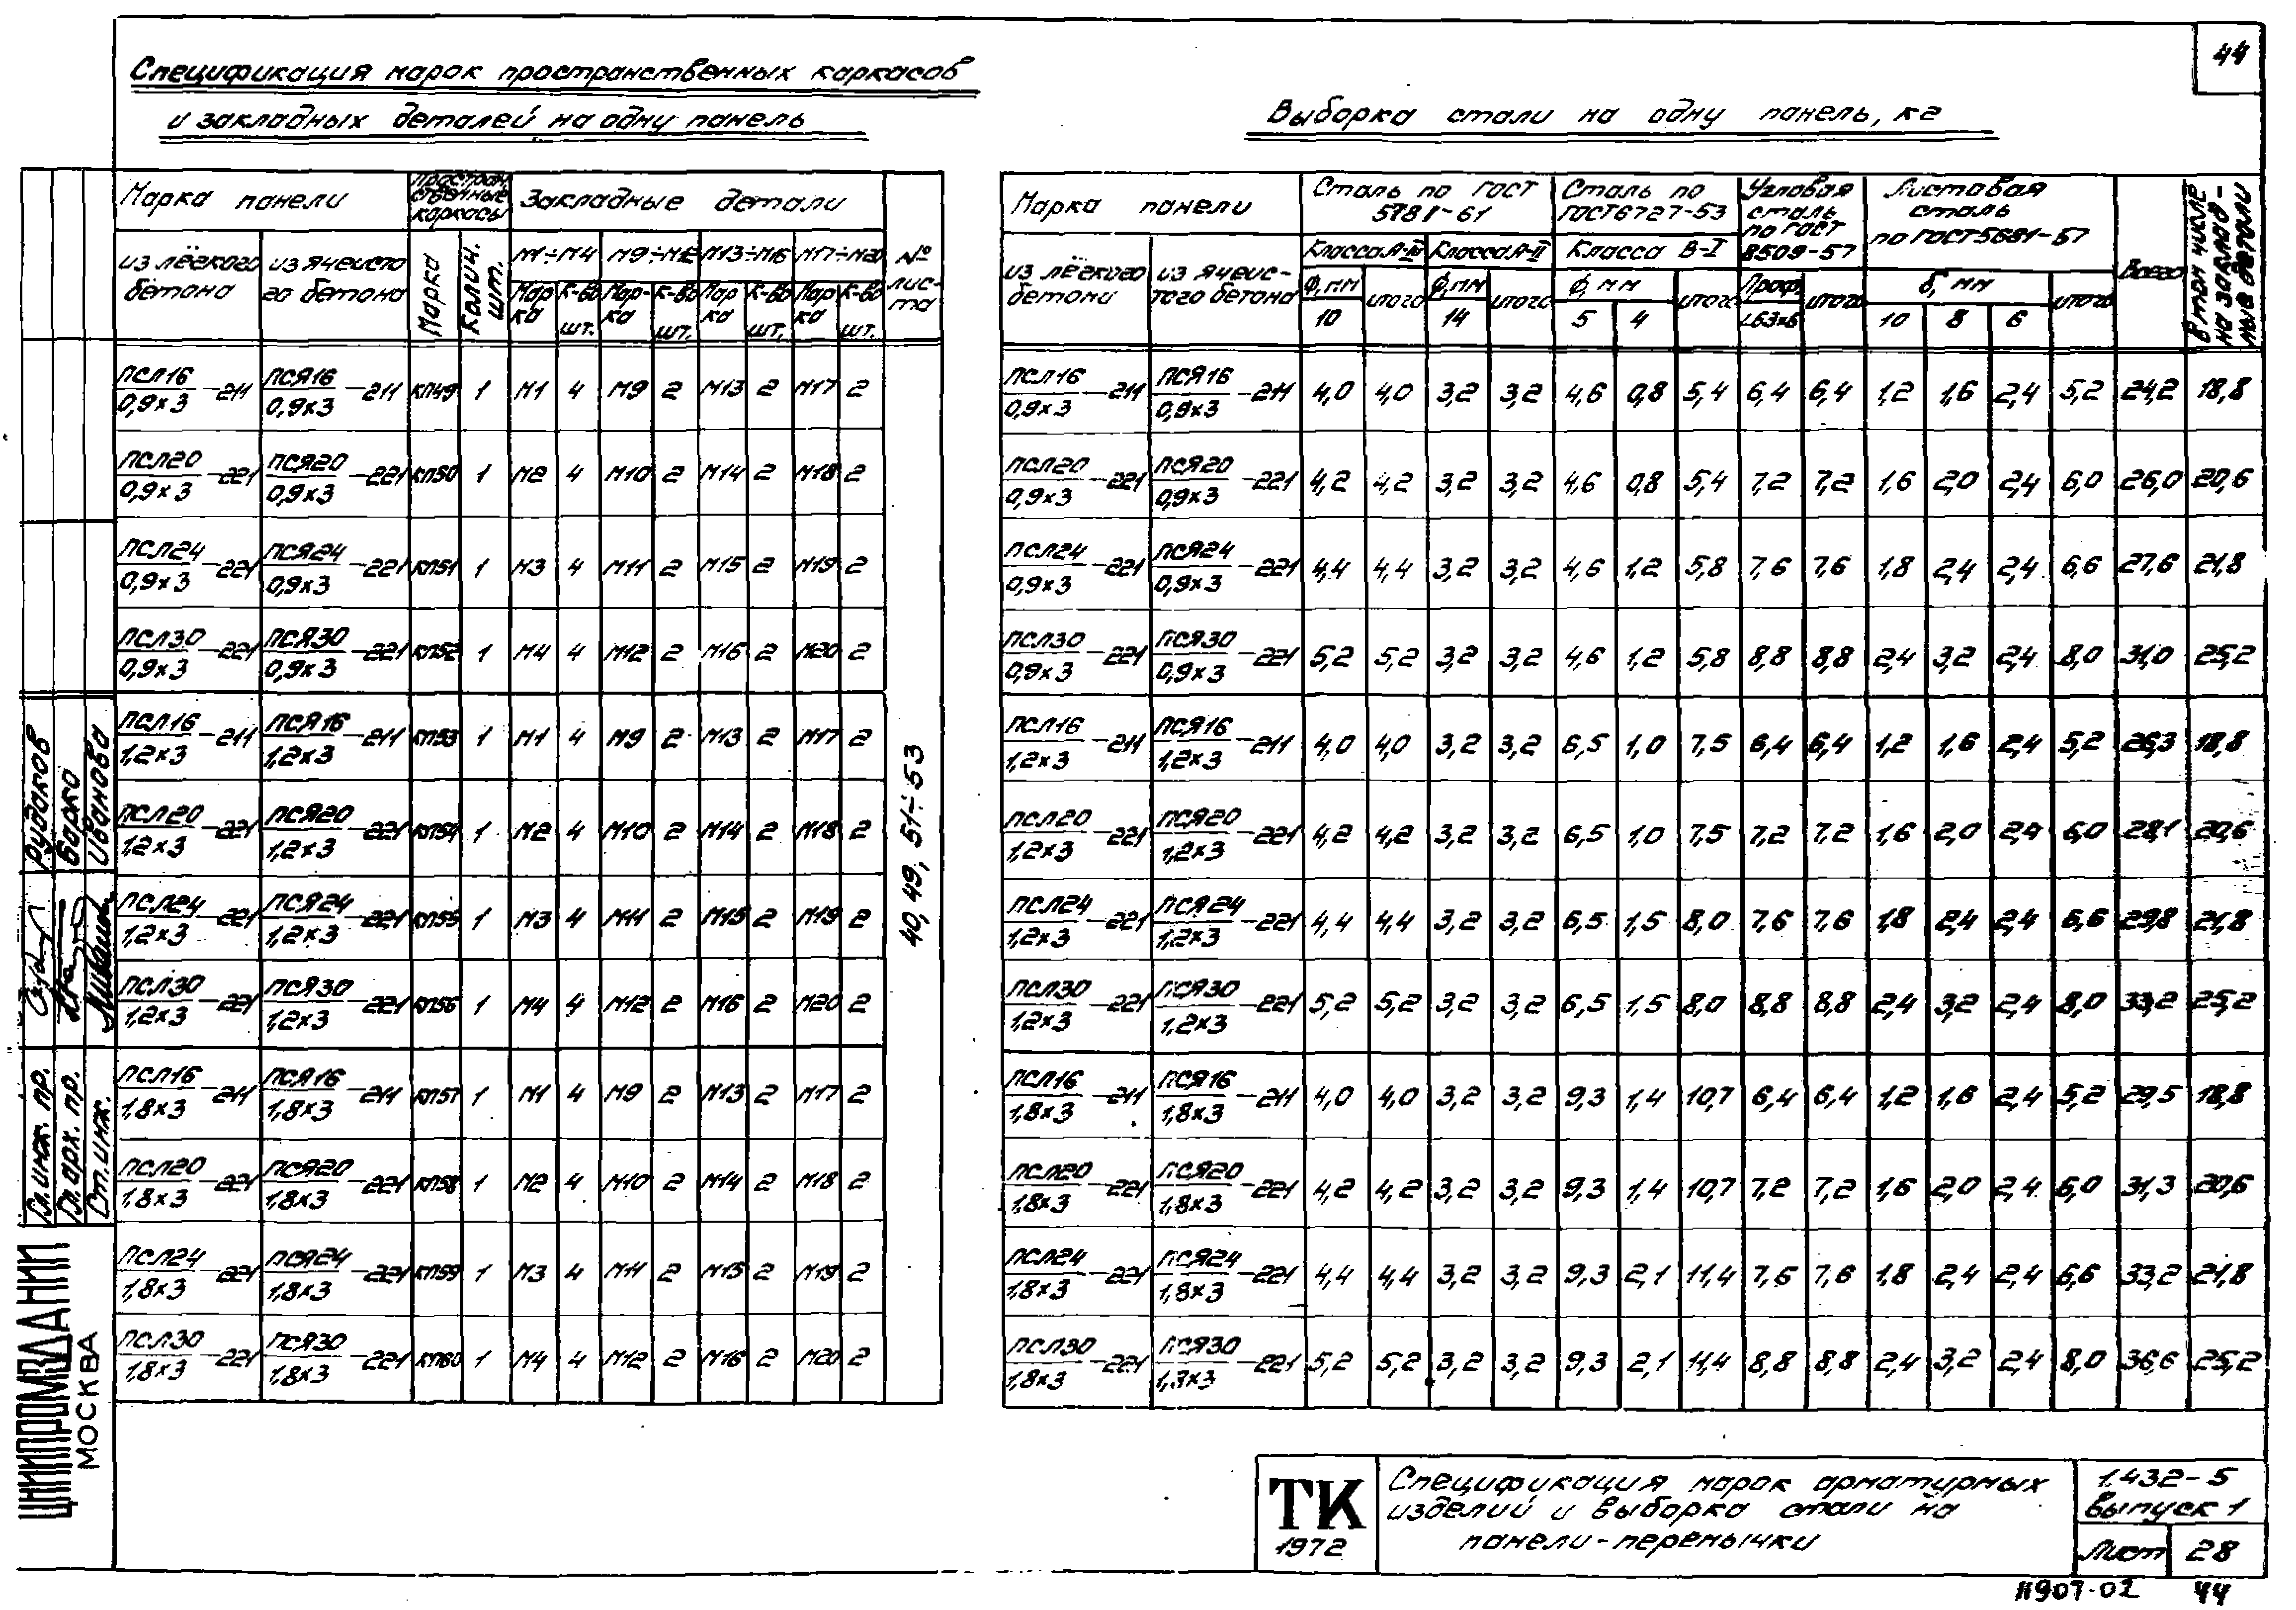 44
Спецификация марок пространственных каркасов
и закладных деталей на одну панель
Выборка стали на одну панель, кг
Марка панели | Пространственные каркасы | Закладные детали | № листа
из лёгкого бетона | из ячеистого бетона | Марка | Колич. шт. | М1÷М4 | М9÷М12 | М13÷М16 | М17÷М20
Марка | к-во шт. | Марка | к-во шт. | Марка | к-во шт. | Марка | к-во шт.
ПСЛ16/0,9×3 -211 | ПСЯ16/0,9×3 -211 | КП49 | 1 | М1 | 4 | М9 | 2 | М13 | 2 | М17 | 2
ПСЛ20/0,9×3 -221 | ПСЯ20/0,9×3 -221 | КП50 | 1 | М2 | 4 | М10 | 2 | М14 | 2 | М18 | 2
ПСЛ24/0,9×3 -221 | ПСЯ24/0,9×3 -221 | КП51 | 1 | М3 | 4 | М11 | 2 | М15 | 2 | М19 | 2
ПСЛ30/0,9×3 -221 | ПСЯ30/0,9×3 -221 | КП52 | 1 | М4 | 4 | М12 | 2 | М16 | 2 | М20 | 2
ПСЛ16/1,2×3 -211 | ПСЯ16/1,2×3 -211 | КП53 | 1 | М1 | 4 | М9 | 2 | М13 | 2 | М17 | 2
ПСЛ20/1,2×3 -221 | ПСЯ20/1,2×3 -221 | КП54 | 1 | М2 | 4 | М10 | 2 | М14 | 2 | М18 | 2
ПСЛ24/1,2×3 -221 | ПСЯ24/1,2×3 -221 | КП55 | 1 | М3 | 4 | М11 | 2 | М15 | 2 | М19 | 2
ПСЛ30/1,2×3 -221 | ПСЯ30/1,2×3 -221 | КП56 | 1 | М4 | 4 | М12 | 2 | М16 | 2 | М20 | 2
ПСЛ16/1,8×3 -211 | ПСЯ16/1,8×3 -211 | КП57 | 1 | М1 | 4 | М9 | 2 | М13 | 2 | М17 | 2
ПСЛ20/1,8×3 -221 | ПСЯ20/1,8×3 -221 | КП58 | 1 | М2 | 4 | М10 | 2 | М14 | 2 | М18 | 2
ПСЛ24/1,8×3 -221 | ПСЯ24/1,8×3 -221 | КП59 | 1 | М3 | 4 | М11 | 2 | М15 | 2 | М19 | 2
ПСЛ30/1,8×3 -221 | ПСЯ30/1,8×3 -221 | КП60 | 1 | М4 | 4 | М12 | 2 | М16 | 2 | М20 | 2
40, 49, 51÷53
Марка панели | Сталь по ГОСТ 5781-61 | Сталь по ГОСТ 6727-53 | Угловая сталь по ГОСТ 8509-57 | Листовая сталь по ГОСТ 5681-57 | Всего | В том числе на закладные детали
из лёгкого бетона | из ячеистого бетона | Класса А-III | Класса А-II | Класса В-I
Ф, мм | итого | Ф, мм | итого | Ф, мм | итого | Проф. | итого | δ, мм | итого
10 | 14 | 5 | 4 | L63×6 | 10 | 8 | 6
ПСЛ16/0,9×3 -211 | ПСЯ16/0,9×3 -211 | 4,0 | 4,0 | 3,2 | 3,2 | 4,6 | 0,8 | 5,4 | 6,4 | 6,4 | 1,2 | 1,6 | 2,4 | 5,2 | 24,2 | 18,8
ПСЛ20/0,9×3 -221 | ПСЯ20/0,9×3 -221 | 4,2 | 4,2 | 3,2 | 3,2 | 4,6 | 0,8 | 5,4 | 7,2 | 7,2 | 1,6 | 2,0 | 2,4 | 6,0 | 26,0 | 20,6
ПСЛ24/0,9×3 -221 | ПСЯ24/0,9×3 -221 | 4,4 | 4,4 | 3,2 | 3,2 | 4,6 | 1,2 | 5,8 | 7,6 | 7,6 | 1,8 | 2,4 | 2,4 | 6,6 | 27,6 | 21,8
ПСЛ30/0,9×3 -221 | ПСЯ30/0,9×3 -221 | 5,2 | 5,2 | 3,2 | 3,2 | 4,6 | 1,2 | 5,8 | 8,8 | 8,8 | 2,4 | 3,2 | 2,4 | 8,0 | 31,0 | 25,2
ПСЛ16/1,2×3 -211 | ПСЯ16/1,2×3 -211 | 4,0 | 4,0 | 3,2 | 3,2 | 6,5 | 1,0 | 7,5 | 6,4 | 6,4 | 1,2 | 1,6 | 2,4 | 5,2 | 26,3 | 18,8
ПСЛ20/1,2×3 -221 | ПСЯ20/1,2×3 -221 | 4,2 | 4,2 | 3,2 | 3,2 | 6,5 | 1,0 | 7,5 | 7,2 | 7,2 | 1,6 | 2,0 | 2,4 | 6,0 | 28,1 | 20,6
ПСЛ24/1,2×3 -221 | ПСЯ24/1,2×3 -221 | 4,4 | 4,4 | 3,2 | 3,2 | 6,5 | 1,5 | 8,0 | 7,6 | 7,6 | 1,8 | 2,4 | 2,4 | 6,6 | 29,8 | 21,8
ПСЛ30/1,2×3 -221 | ПСЯ30/1,2×3 -221 | 5,2 | 5,2 | 3,2 | 3,2 | 6,5 | 1,5 | 8,0 | 8,8 | 8,8 | 2,4 | 3,2 | 2,4 | 8,0 | 33,2 | 25,2
ПСЛ16/1,8×3 -211 | ПСЯ16/1,8×3 -211 | 4,0 | 4,0 | 3,2 | 3,2 | 9,3 | 1,4 | 10,7 | 6,4 | 6,4 | 1,2 | 1,6 | 2,4 | 5,2 | 29,5 | 18,8
ПСЛ20/1,8×3 -221 | ПСЯ20/1,8×3 -221 | 4,2 | 4,2 | 3,2 | 3,2 | 9,3 | 1,4 | 10,7 | 7,2 | 7,2 | 1,6 | 2,0 | 2,4 | 6,0 | 31,3 | 20,6
ПСЛ24/1,8×3 -221 | ПСЯ24/1,8×3 -221 | 4,4 | 4,4 | 3,2 | 3,2 | 9,3 | 2,1 | 11,4 | 7,6 | 7,6 | 1,8 | 2,4 | 2,4 | 6,6 | 33,2 | 21,8
ПСЛ30/1,8×3 -221 | ПСЯ30/1,8×3 -221 | 5,2 | 5,2 | 3,2 | 3,2 | 9,3 | 2,1 | 11,4 | 8,8 | 8,8 | 2,4 | 3,2 | 2,4 | 8,0 | 36,6 | 25,2
Гл. инж. пр. Рудаков
Гл. арх. пр. Барко
Ст. инж. Иванова
ЦНИИПРОМЗДАНИЙ
МОСКВА
ТК
1972
Спецификация марок арматурных
изделий и выборка стали на
панели-перемычки
1.432-5
выпуск 1
Лист 28
11907-02 44